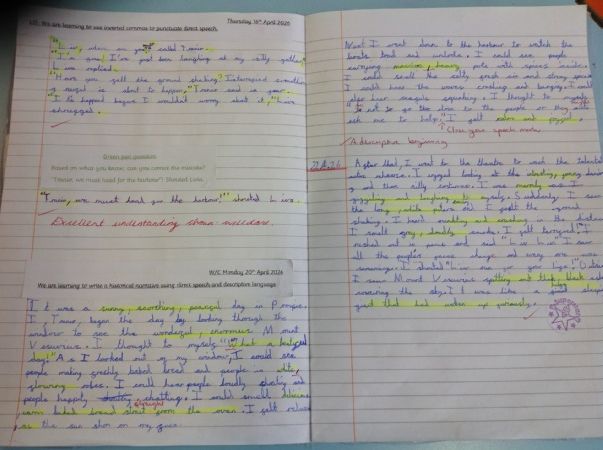 LO: We are learning to use inverted commas to punctuate direct speech. Thursday 16th April 2026
"Livia, where are you?" called Tranio.
"I'm here! I've just been laughing at my silly
Livia replied.
"Have you felt the ground shaking? Interrupted
is about to happen," Tranio said in
"It's happened before I wouldn't worry about it," Livia
shrugged.
Green pen question:
Based on what you know, can you correct the mistake?
"Tranio, we must head for the harbour"! Shouted Livia.
"Tranio, we must head for the harbour!" shouted Livia.
Excellent understanding shown
W/C Monday 20th April 2026
We are learning to write a historical narrative using direct speech and descriptive language.
It was a sunny, scorching, peaceful day in Pompeii.
I, Tranio, began the day by looking through the
window to see the wonderful, enormous Mount
Vesuvius. I thought to myself "What a beautiful
day!" As I looked out of my window, I could see
people making freshly baked bread and people in white,
glowing robes. I could hear people loudly and
people happily chatting. I could smell delicious
warm baked bread straight from the oven. I felt relaxed
as the sun shon on my face.
Next I went down to the harbour to watch the
boats load and unload. I could see people
carrying massive, heavy pots with spices inside.
I could smell the salty, fresh air and strong spices
I could hear the waves crashing and
also hear seagulls squawking. I thought to myself
"to not to go too close to the people or they will
ask me to help." I felt calm and joyful.
Close your speech marks.
A descriptive beginning
22.4.26
After that, I went to the theatre to watch the talented
actors rehearse. I enjoyed looking at the
and their silly costumes. I was
giggling and laughing to myself. Suddenly, I saw
the long, white pillars and I felt the ground
shaking. I heard and crashing in the distance
I smelt grey, smoke. I felt terrified. I
rushed out in panic and said "Livia Livia" I saw
all the people's panic faces and were
screaming. I shouted "Livia run for your life!"
I saw Mount Vesuvius spitting out thick black ash
covering the sky. It was like a sleeping
giant that had woken up furiously.